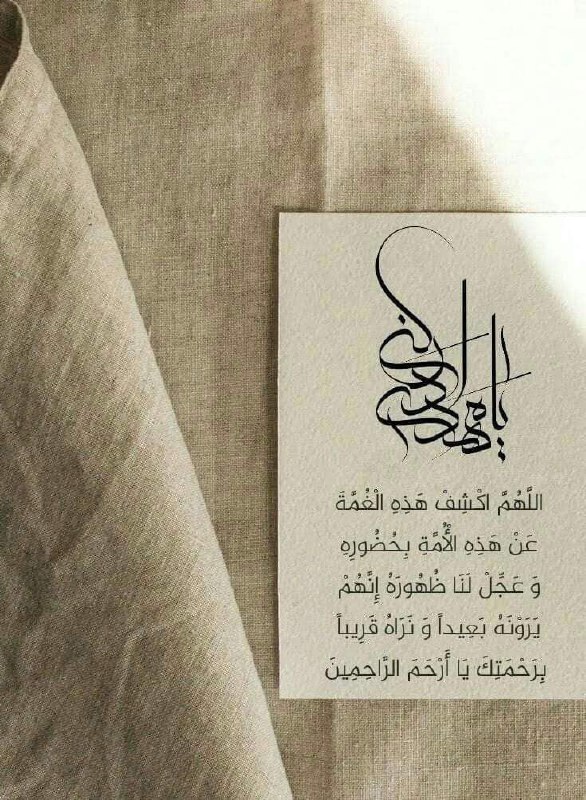 یا مهدی ادرکنی
اللَّهُمَّ اكْشِفْ هَذِهِ الْغُمَّةَ
عَنْ هَذِهِ الْأُمَّةِ بِحُضُورِهِ
وَ عَجِّلْ لَنَا ظُهُورَهُ إِنَّهُمْ
يَرَوْنَهُ بَعِيداً وَ نَرَاهُ قَرِيباً
بِرَحْمَتِكَ يَا أَرْحَمَ الرَّاحِمِينَ